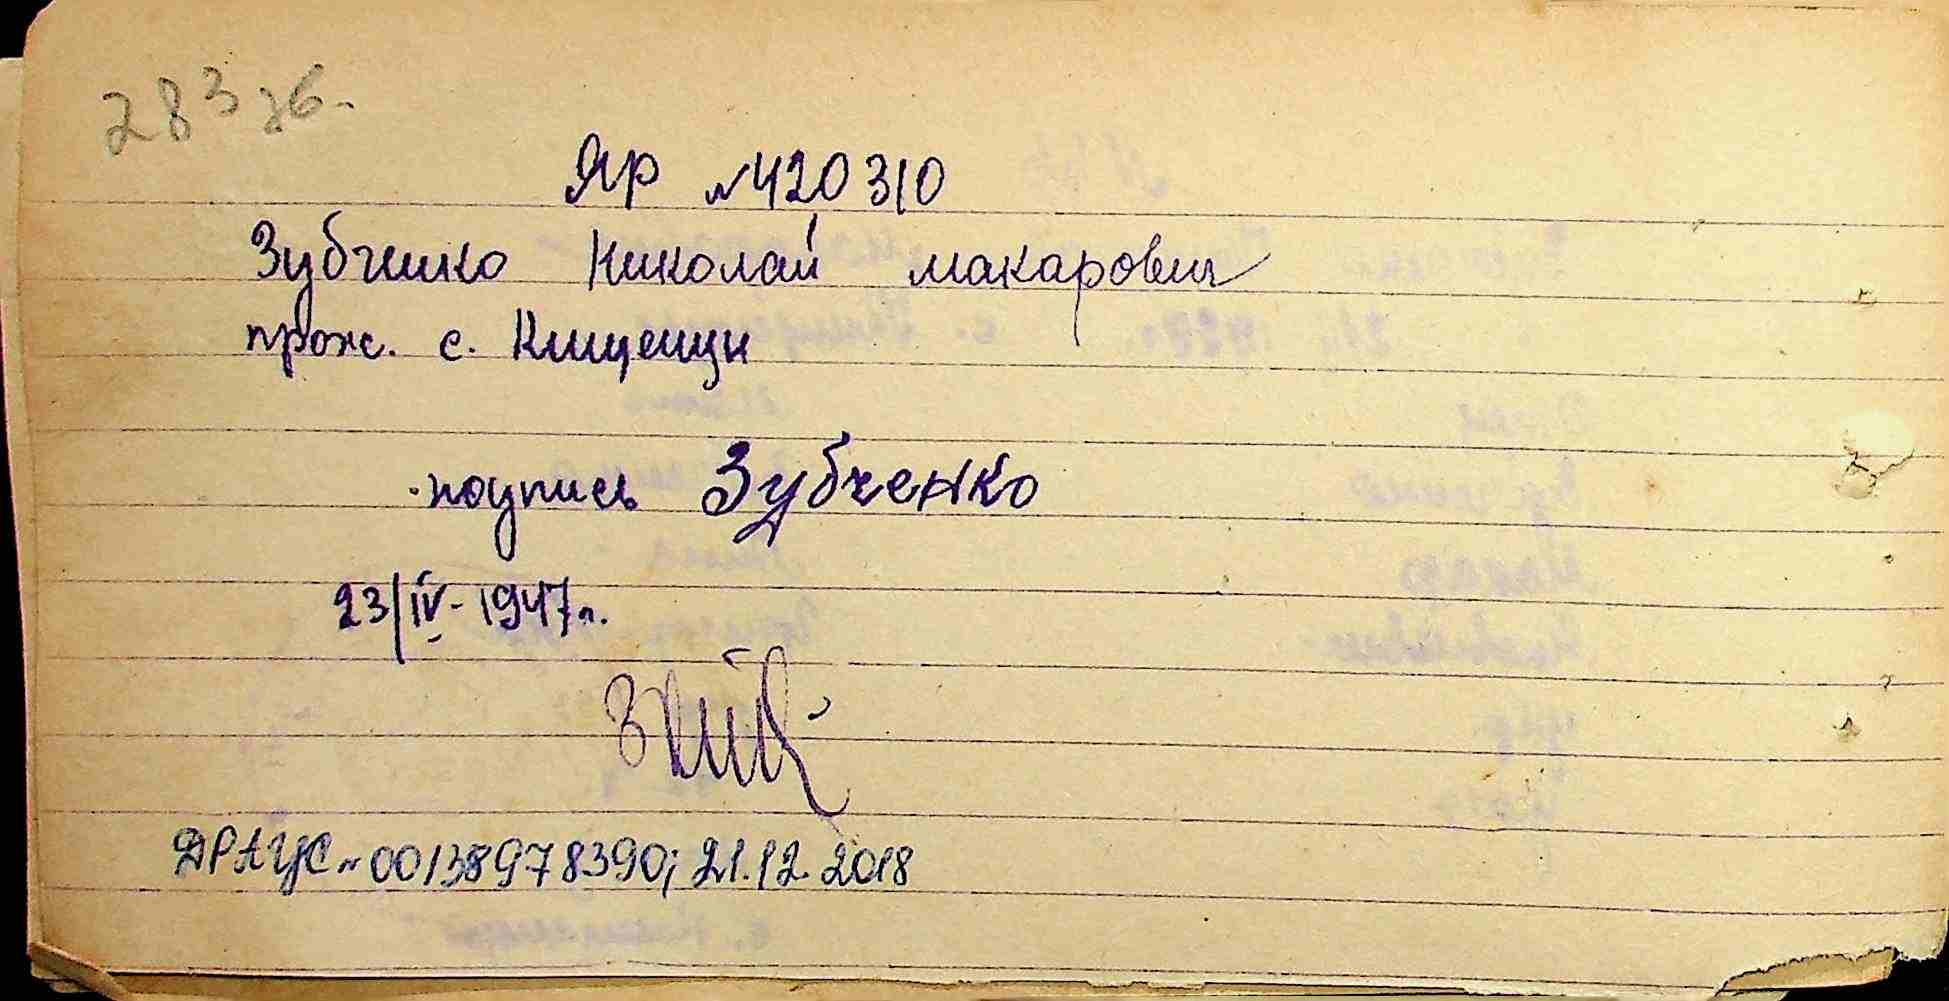 283 зб.
ЯР №420310
Зубченко Николай Макарович
прож. с. Кищенцы
подпись Зубченко
23/IV-1947г.
ДРАЦС №00138978390; 21.12.2018